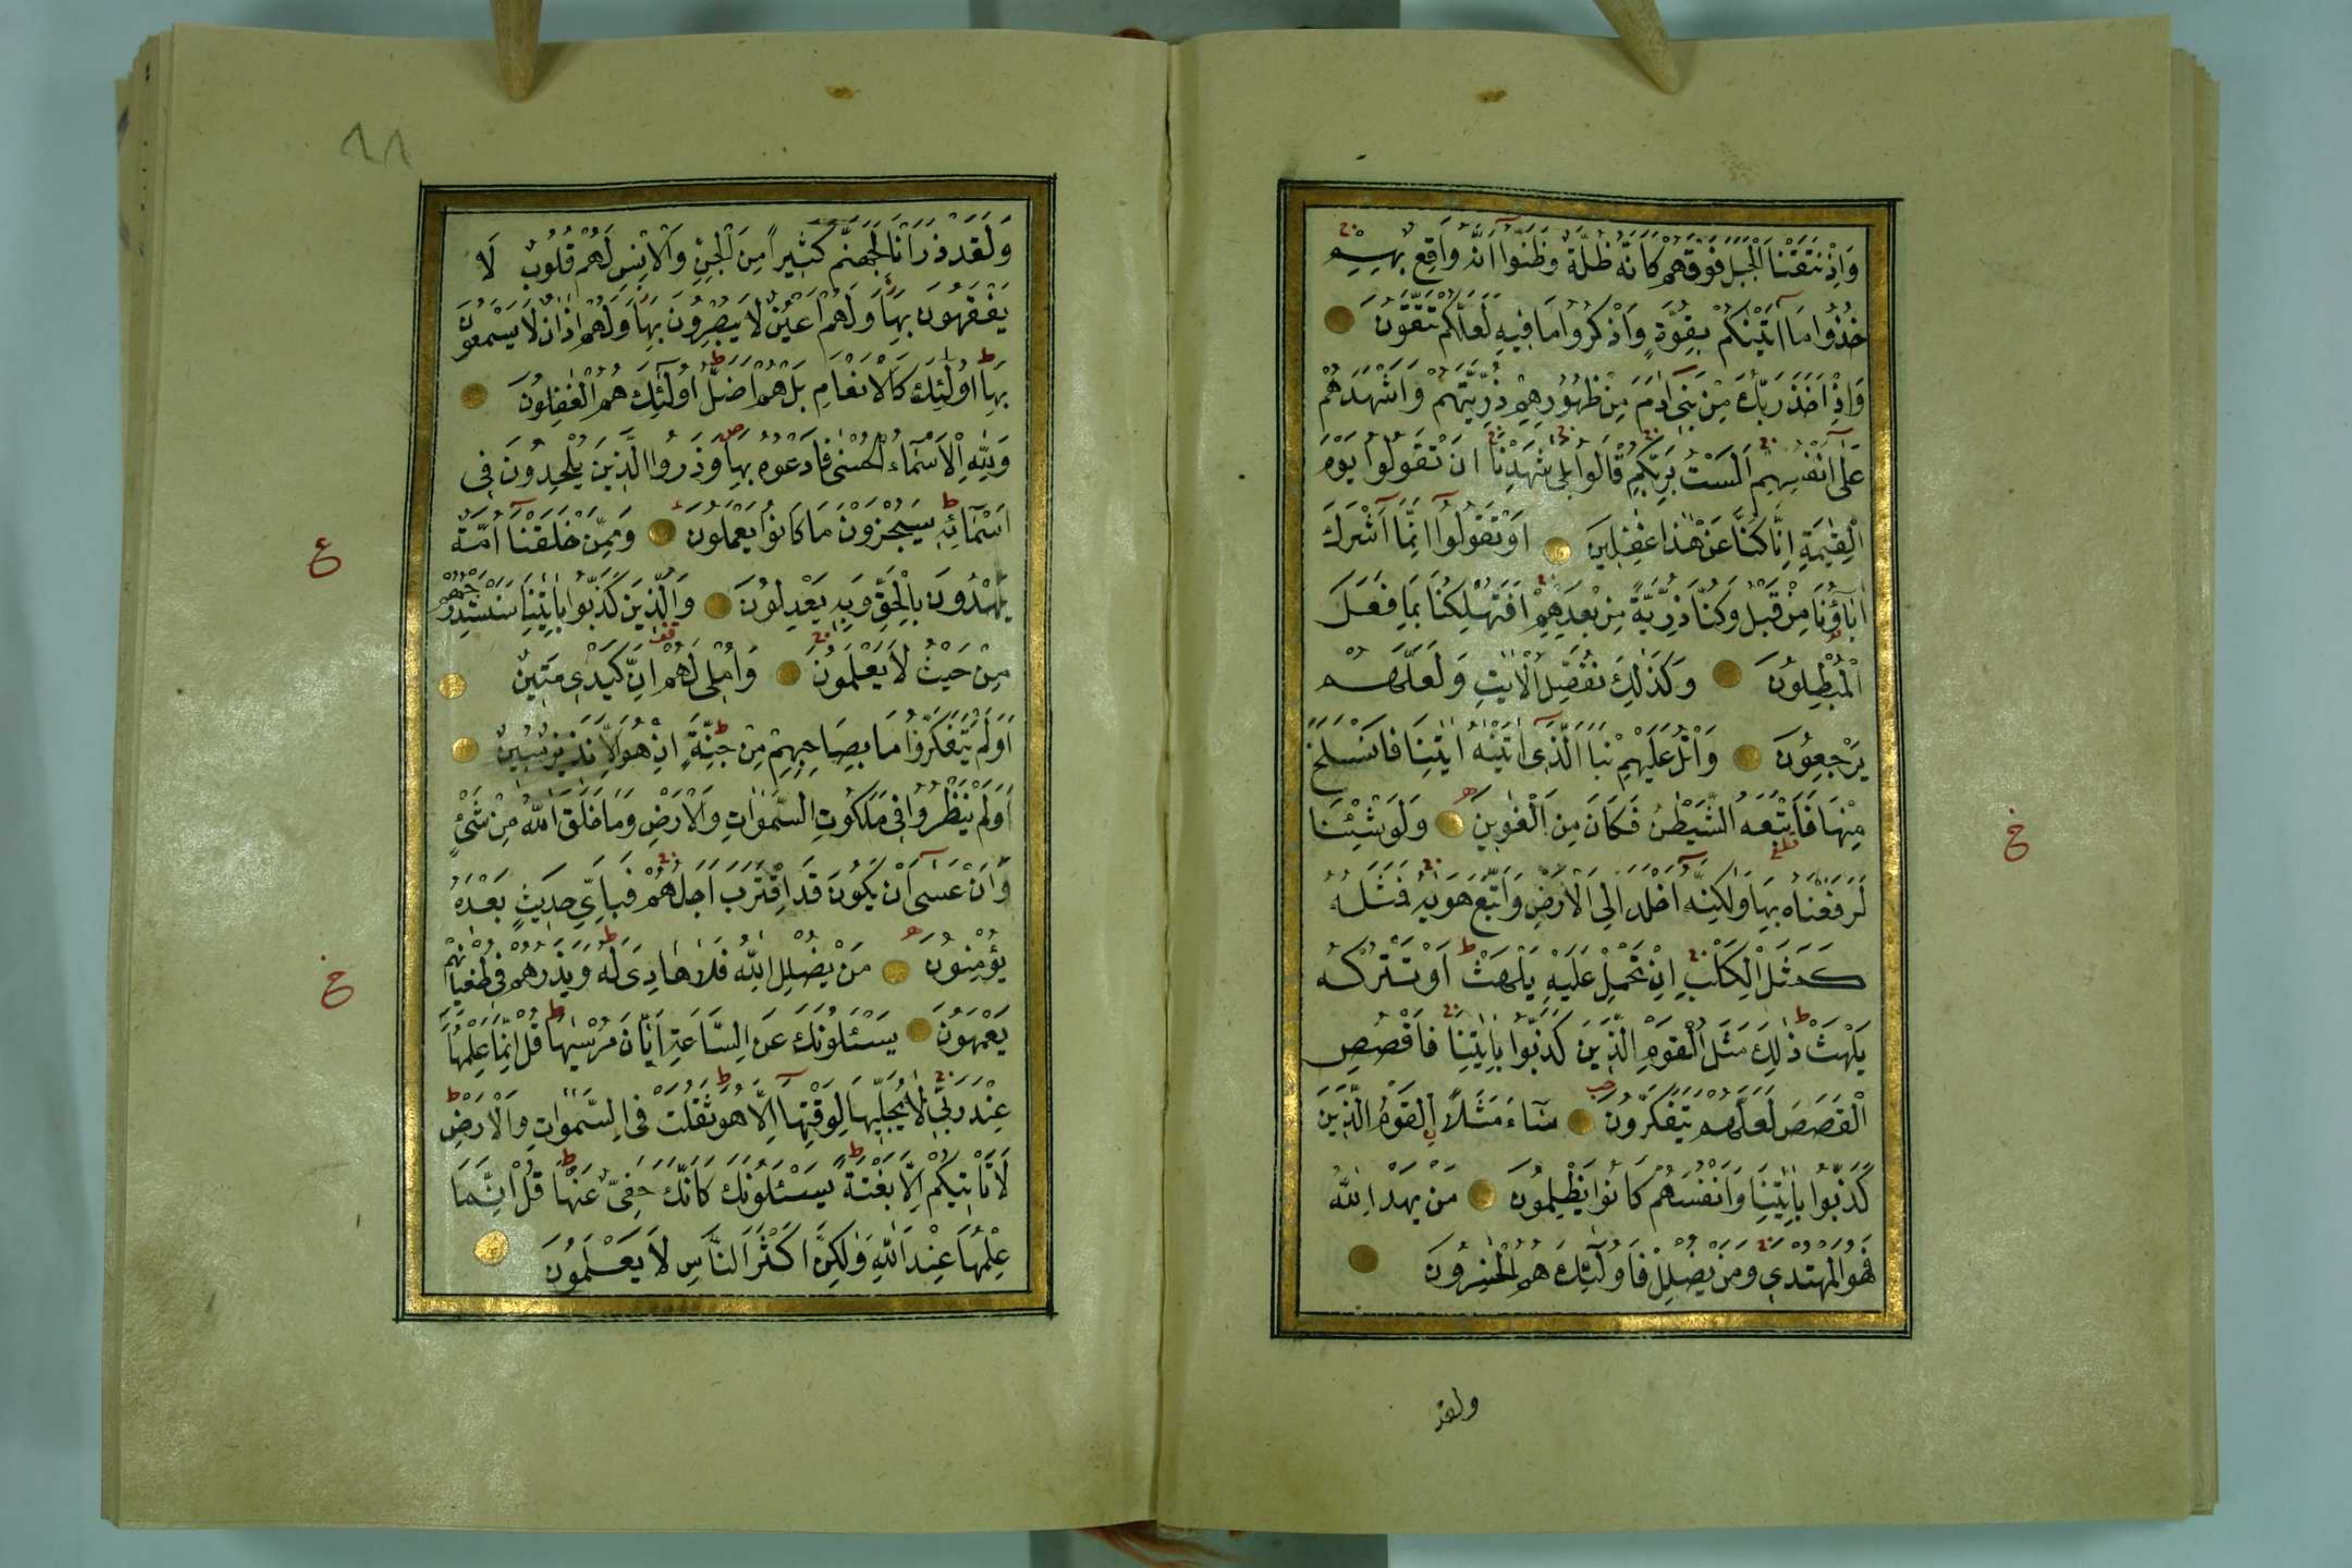 وَاِذْ نَتَقْنَا الْجَبَلَ فَوْقَهُمْ كَاَنَّهُ ظُلَّةٌ وَظَنُّوا اَنَّهُ وَاقِعٌ بِهِمْ
خُذُوا مَا اٰتَيْنٰكُمْ بِقُوَّةٍ وَاذْكُرُوا مَا فِيهِ لَعَلَّكُمْ تَتَّقُونَ
وَاِذْ اَخَذَ رَبُّكَ مِنْ بَنِى اٰدَمَ مِنْ ظُهُورِهِمْ ذُرِّيَّتَهُمْ وَاَشْهَدَهُمْ
عَلٰى اَنْفُسِهِمْ اَلَسْتُ بِرَبِّكُمْ قَالُوا بَلٰى شَهِدْنَا اَنْ تَقُولُوا يَوْمَ
الْقِيٰمَةِ اِنَّا كُنَّا عَنْ هٰذَا غٰفِلِينَ اَوْ تَقُولُوا اِنَّمَا اَشْرَكَ
اٰبَاؤُنَا مِنْ قَبْلُ وَكُنَّا ذُرِّيَّةً مِنْ بَعْدِهِمْ اَفَتُهْلِكُنَا بِمَا فَعَلَ
الْمُبْطِلُونَ وَكَذٰلِكَ نُفَصِّلُ الْاٰيٰتِ وَلَعَلَّهُمْ
يَرْجِعُونَ وَاتْلُ عَلَيْهِمْ نَبَاَ الَّذِى اٰتَيْنٰهُ اٰيٰتِنَا فَانْسَلَخَ
مِنْهَا فَاَتْبَعَهُ الشَّيْطٰنُ فَكَانَ مِنَ الْغٰوِينَ وَلَوْ شِئْنَا
لَرَفَعْنَاهُ بِهَا وَلٰكِنَّهُ اَخْلَدَ اِلَى الْاَرْضِ وَاتَّبَعَ هَوٰيهُ فَمَثَلُهُ
كَمَثَلِ الْكَلْبِ اِنْ تَحْمِلْ عَلَيْهِ يَلْهَثْ اَوْ تَتْرُكْهُ
يَلْهَثْ ذٰلِكَ مَثَلُ الْقَوْمِ الَّذِينَ كَذَّبُوا بِاٰيٰتِنَا فَاقْصُصِ
الْقَصَصَ لَعَلَّهُمْ يَتَفَكَّرُونَ سَاءَ مَثَلًا الْقَوْمُ الَّذِينَ
كَذَّبُوا بِاٰيٰتِنَا وَاَنْفُسَهُمْ كَانُوا يَظْلِمُونَ مَنْ يَهْدِ اللّٰهُ
فَهُوَ الْمُهْتَدِى وَمَنْ يُضْلِلْ فَاُولٰئِكَ هُمُ الْخٰسِرُونَ
ولقد
خ
٩٨
وَلَقَدْ ذَرَاْنَا لِجَهَنَّمَ كَثِيرًا مِنَ الْجِنِّ وَالْاِنْسِ لَهُمْ قُلُوبٌ لَا
يَفْقَهُونَ بِهَا وَلَهُمْ اَعْيُنٌ لَا يُبْصِرُونَ بِهَا وَلَهُمْ اٰذَانٌ لَا يَسْمَعُونَ
بِهَا اُولٰئِكَ كَالْاَنْعَامِ بَلْ هُمْ اَضَلُّ اُولٰئِكَ هُمُ الْغٰفِلُونَ
وَلِلّٰهِ الْاَسْمَاءُ الْحُسْنٰى فَادْعُوهُ بِهَا وَذَرُوا الَّذِينَ يُلْحِدُونَ فِى
اَسْمَائِهِ سَيُجْزَوْنَ مَا كَانُوا يَعْمَلُونَ وَمِمَّنْ خَلَقْنَا اُمَّةٌ
يَهْدُونَ بِالْحَقِّ وَبِهِ يَعْدِلُونَ وَالَّذِينَ كَذَّبُوا بِاٰيٰتِنَا سَنَسْتَدْرِجُهُمْ
مِنْ حَيْثُ لَا يَعْلَمُونَ وَاُمْلِى لَهُمْ اِنَّ كَيْدِى مَتِينٌ
اَوَلَمْ يَتَفَكَّرُوا مَا بِصَاحِبِهِمْ مِنْ جِنَّةٍ اِنْ هُوَ اِلَّا نَذِيرٌ مُبِينٌ
اَوَلَمْ يَنْظُرُوا فِى مَلَكُوتِ السَّمٰوَاتِ وَالْاَرْضِ وَمَا خَلَقَ اللّٰهُ مِنْ شَىْءٍ
وَاَنْ عَسٰى اَنْ يَكُونَ قَدِ اقْتَرَبَ اَجَلُهُمْ فَبِاَىِّ حَدِيثٍ بَعْدَهُ
يُؤْمِنُونَ مَنْ يُضْلِلِ اللّٰهُ فَلَا هَادِىَ لَهُ وَيَذَرُهُمْ فِى طُغْيَانِهِمْ
يَعْمَهُونَ يَسْـَٔلُونَكَ عَنِ السَّاعَةِ اَيَّانَ مُرْسٰيهَا قُلْ اِنَّمَا عِلْمُهَا
عِنْدَ رَبِّى لَا يُجَلِّيهَا لِوَقْتِهَا اِلَّا هُوَ ثَقُلَتْ فِى السَّمٰوَاتِ وَالْاَرْضِ
لَا تَاْتِيكُمْ اِلَّا بَغْتَةً يَسْـَٔلُونَكَ كَاَنَّكَ حَفِىٌّ عَنْهَا قُلْ اِنَّمَا
عِلْمُهَا عِنْدَ اللّٰهِ وَلٰكِنَّ اَكْثَرَ النَّاسِ لَا يَعْلَمُونَ
ع
خ